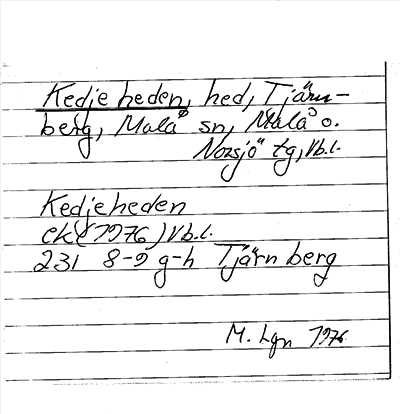 Kedjeheden, hed, Tjärn-
berg, Malå sn, Malå o.
Norsjö tg, Vb.l.
Kedjeheden
ek (1976) Vb.l.
231 8-9 g-h Tjärnberg
M. Lgn 1976